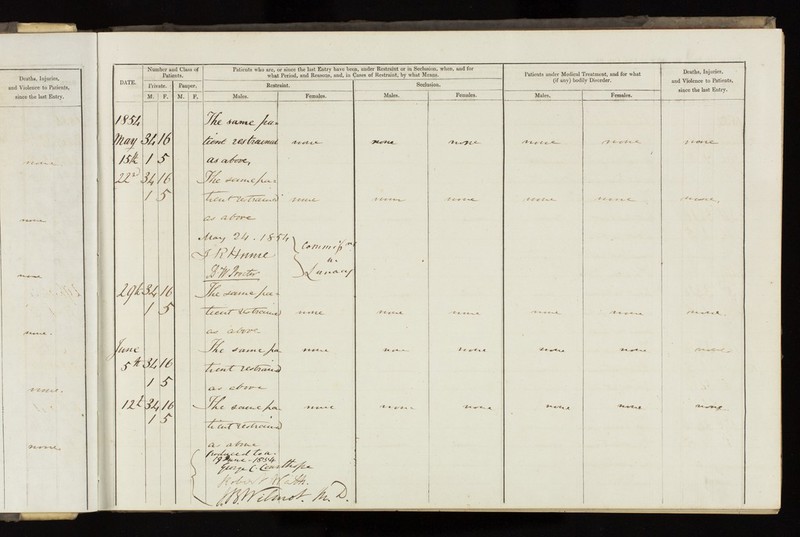 Deaths, Injuries,
and Violence to Patients,
since the last Entry.
none
none
none
none
none
none
DATE.
Number and Class of
Patients.
Private. Pauper.
M. F. M. F.
Patients who are, or since the last Entry have been, under Restraint or in Seclusion, when, and for
what Period, and Reasons, and, in Cases of Restraint, by what Means.
Restraint. Seclusion.
Males. Females. Males. Females.
Patients under Medical Treatment, and for what
(if any) bodily Disorder.
Males. Females.
Deaths, Injuries,
and Violence to Patients,
since the last Entry.
1854 The same pa-
May 34 16 tient restrained none none none none none none
15th 1 5 as above,
22d 34 16 The same pa-
1 5 tient restrained none none none none none none
as above
May 24. 1854
Commissrs
in
Lunacy
B W Procter
29th 34 16 The same pa-
1 5 tient restrained none none none none none none
as above
June The same pa none none none none none none
5th 34 16 tient restrained
1 5 as above
12th 34 16 The same pa- none none none none none none
1 5 tient restrained
as above
Produced to us
19 June 1854
George C.
Robert
Wilmot. M.D.